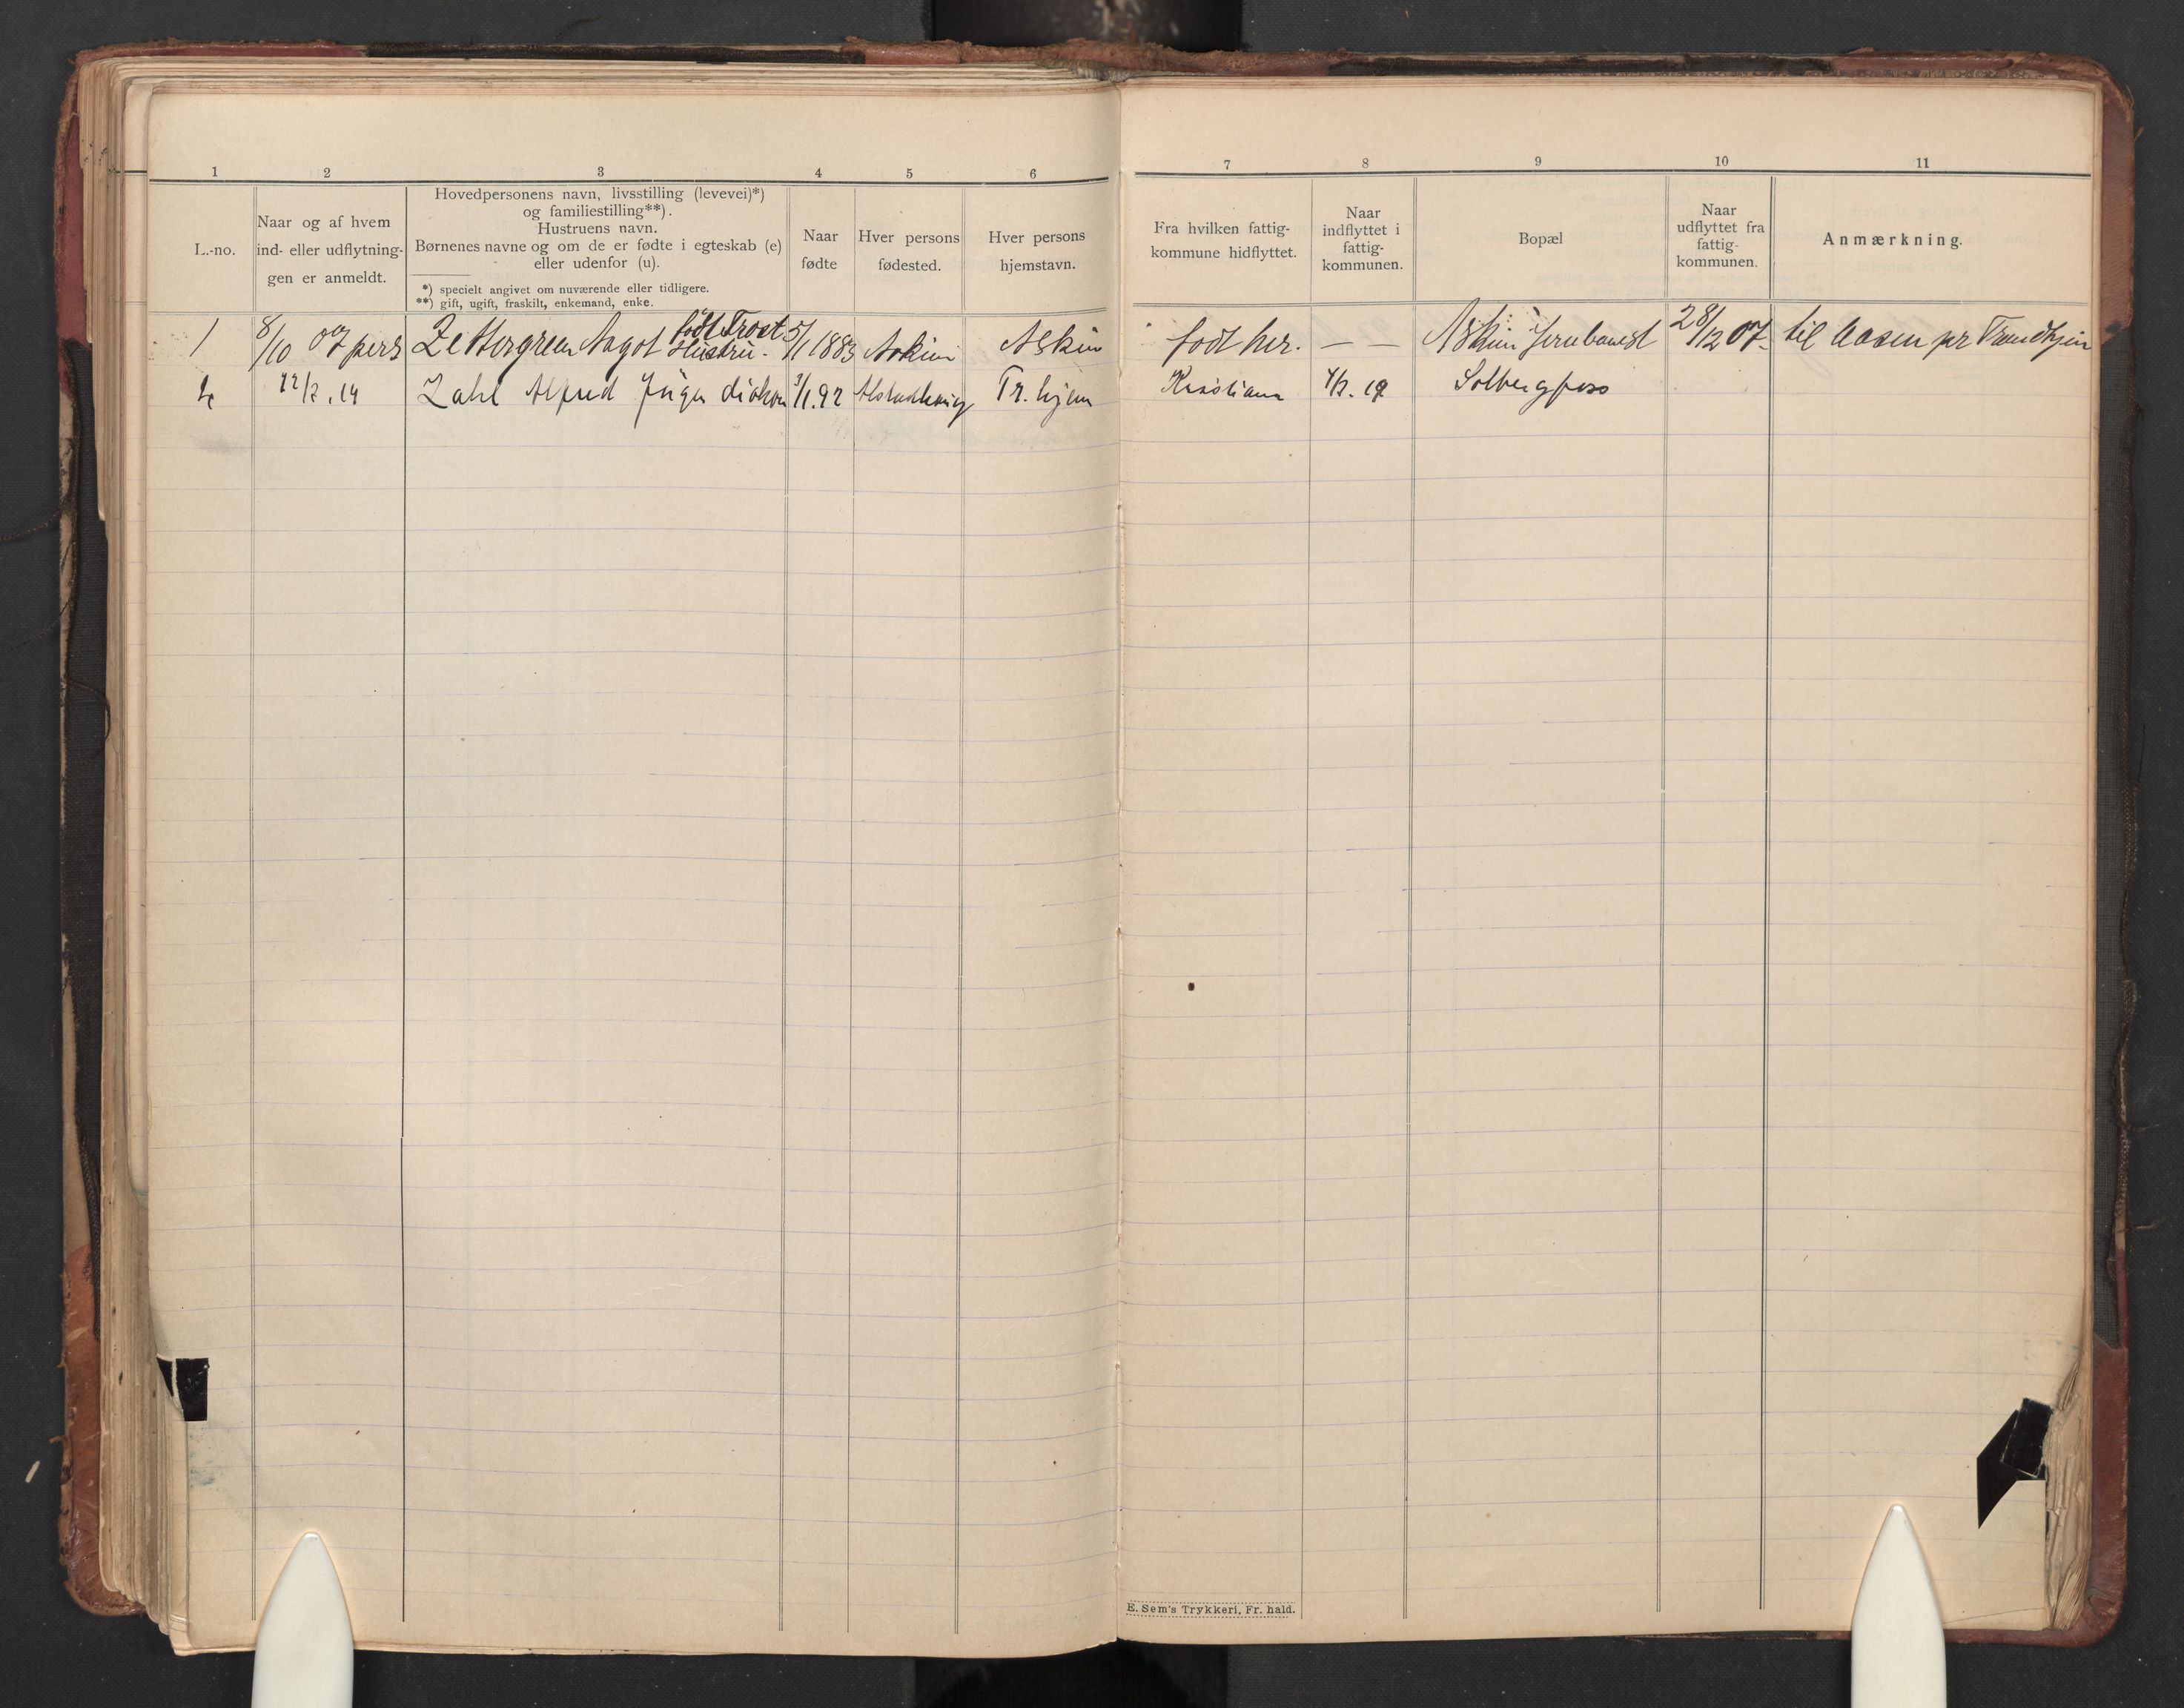 1 2 3 4 5 6 7 8 9 10 11
L.-no.
Naar og af hvem
ind- eller udflytnin-
gen er anmeldt.
Hovedpersonens navn, livsstilling (levevei)*)
og familiestilling**).
Hustruens navn.
Børnenes navne og om de er fødte i egteskab (e)
eller udenfor (u).
*) specielt angivet om nuværende eller tidligere.
**) gift, ugift, fraskilt, enkemand, enke.
Naar
fødte
Hver persons
fødested.
Hver persons
hjemstavn.
Fra hvilken fattig-
kommune hidflyttet.
Naar
indflyttet i
fattig-
kommunen.
Bopæl
Naar
udflyttet fra
fattig-
kommunen.
Anmærkning.
født Trost
1 8/10 07 pers Zettergreen Aagot Hustru. 5/1 1883 Askim Askim født her. — — Askim Jernbanest 28/12 07. til Aasen pr Trondhjem
2 Zahl Alfred 3/1.92 Tr. hjem Kristiania Solbergfoss
E. Sem's Trykkeri, Fr. hald.